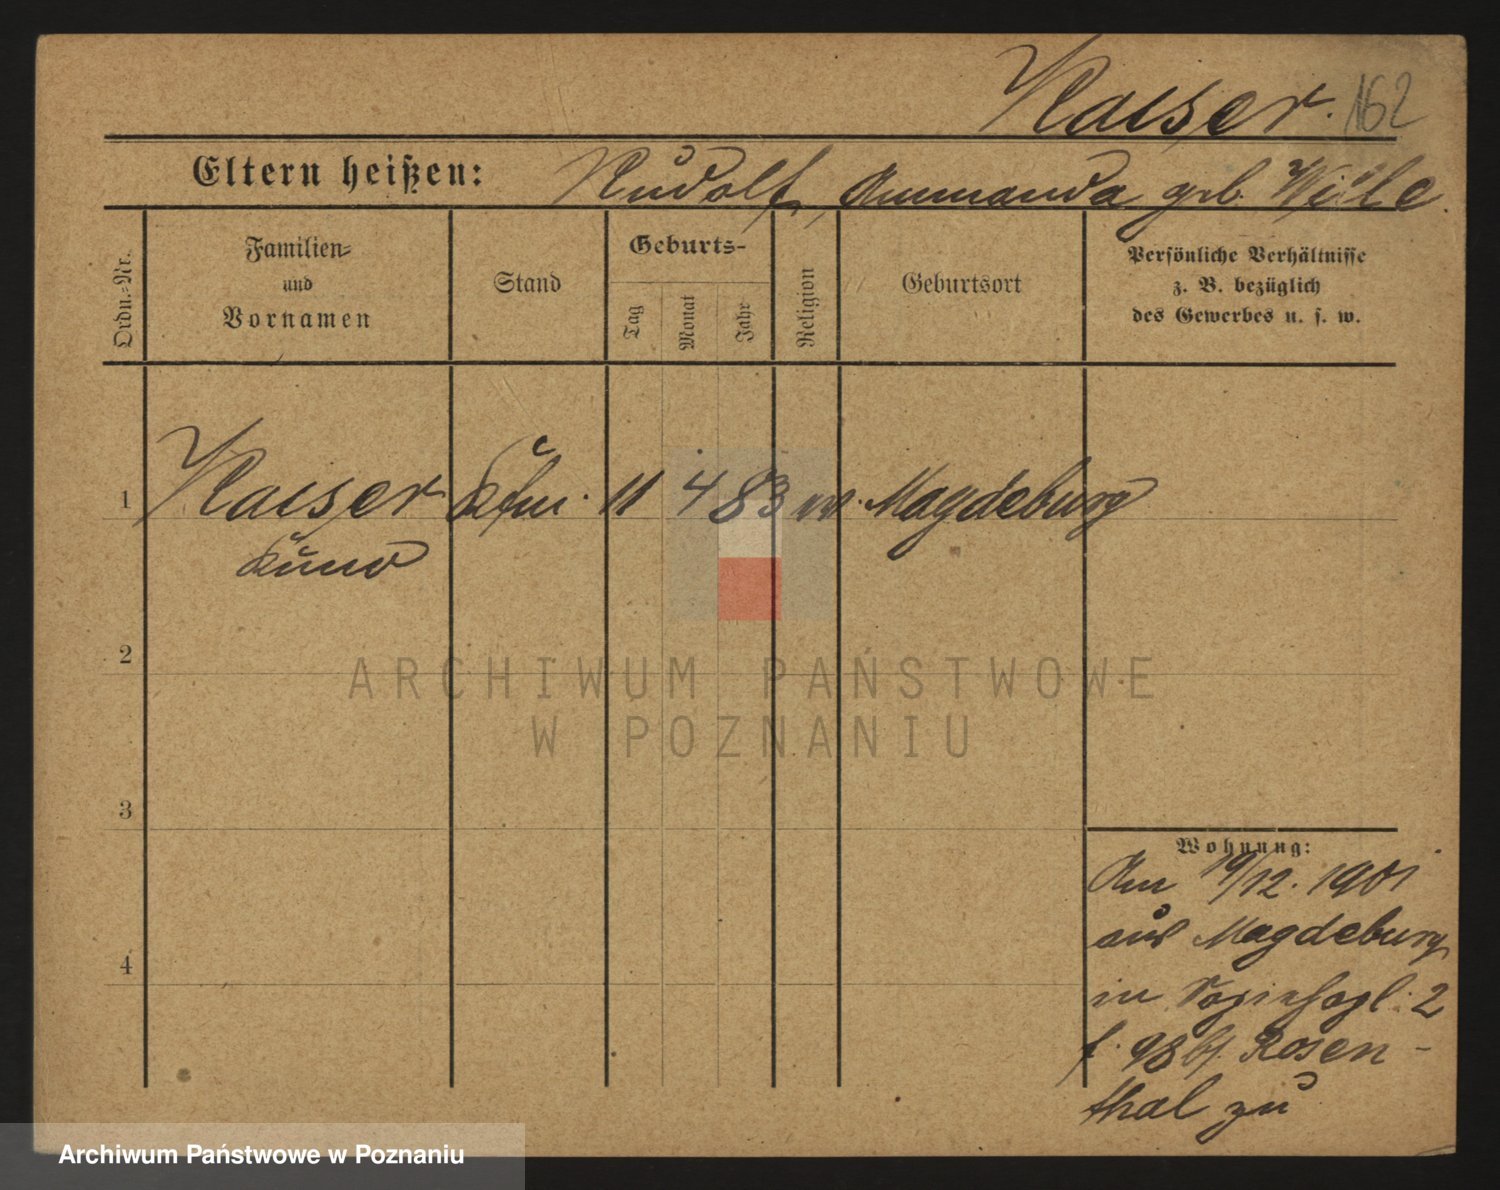 Kaiser. 162
Eltern heißen: Rudolf, Ammanda geb. Wille.
Ordn.-Nr.
Familien- und Vornamen
Stand
Geburts-
Tag
Monat
Jahr
Religion
Geburtsort
Persönliche Verhältnisse
z. B. bezüglich
des Gewerbes u. s. w.
1 Kaiser Kfm. 11 4 83 ev. Magdeburg
Kuno
2
3
4
Wohnung:
Am 19/12. 1901
aus Magdeburg
in 2
f. 98 bei Rosen-
thal zu
ARCHIWUM PAŃSTWOWE
W POZNANIU
Archiwum Państwowe w Poznaniu